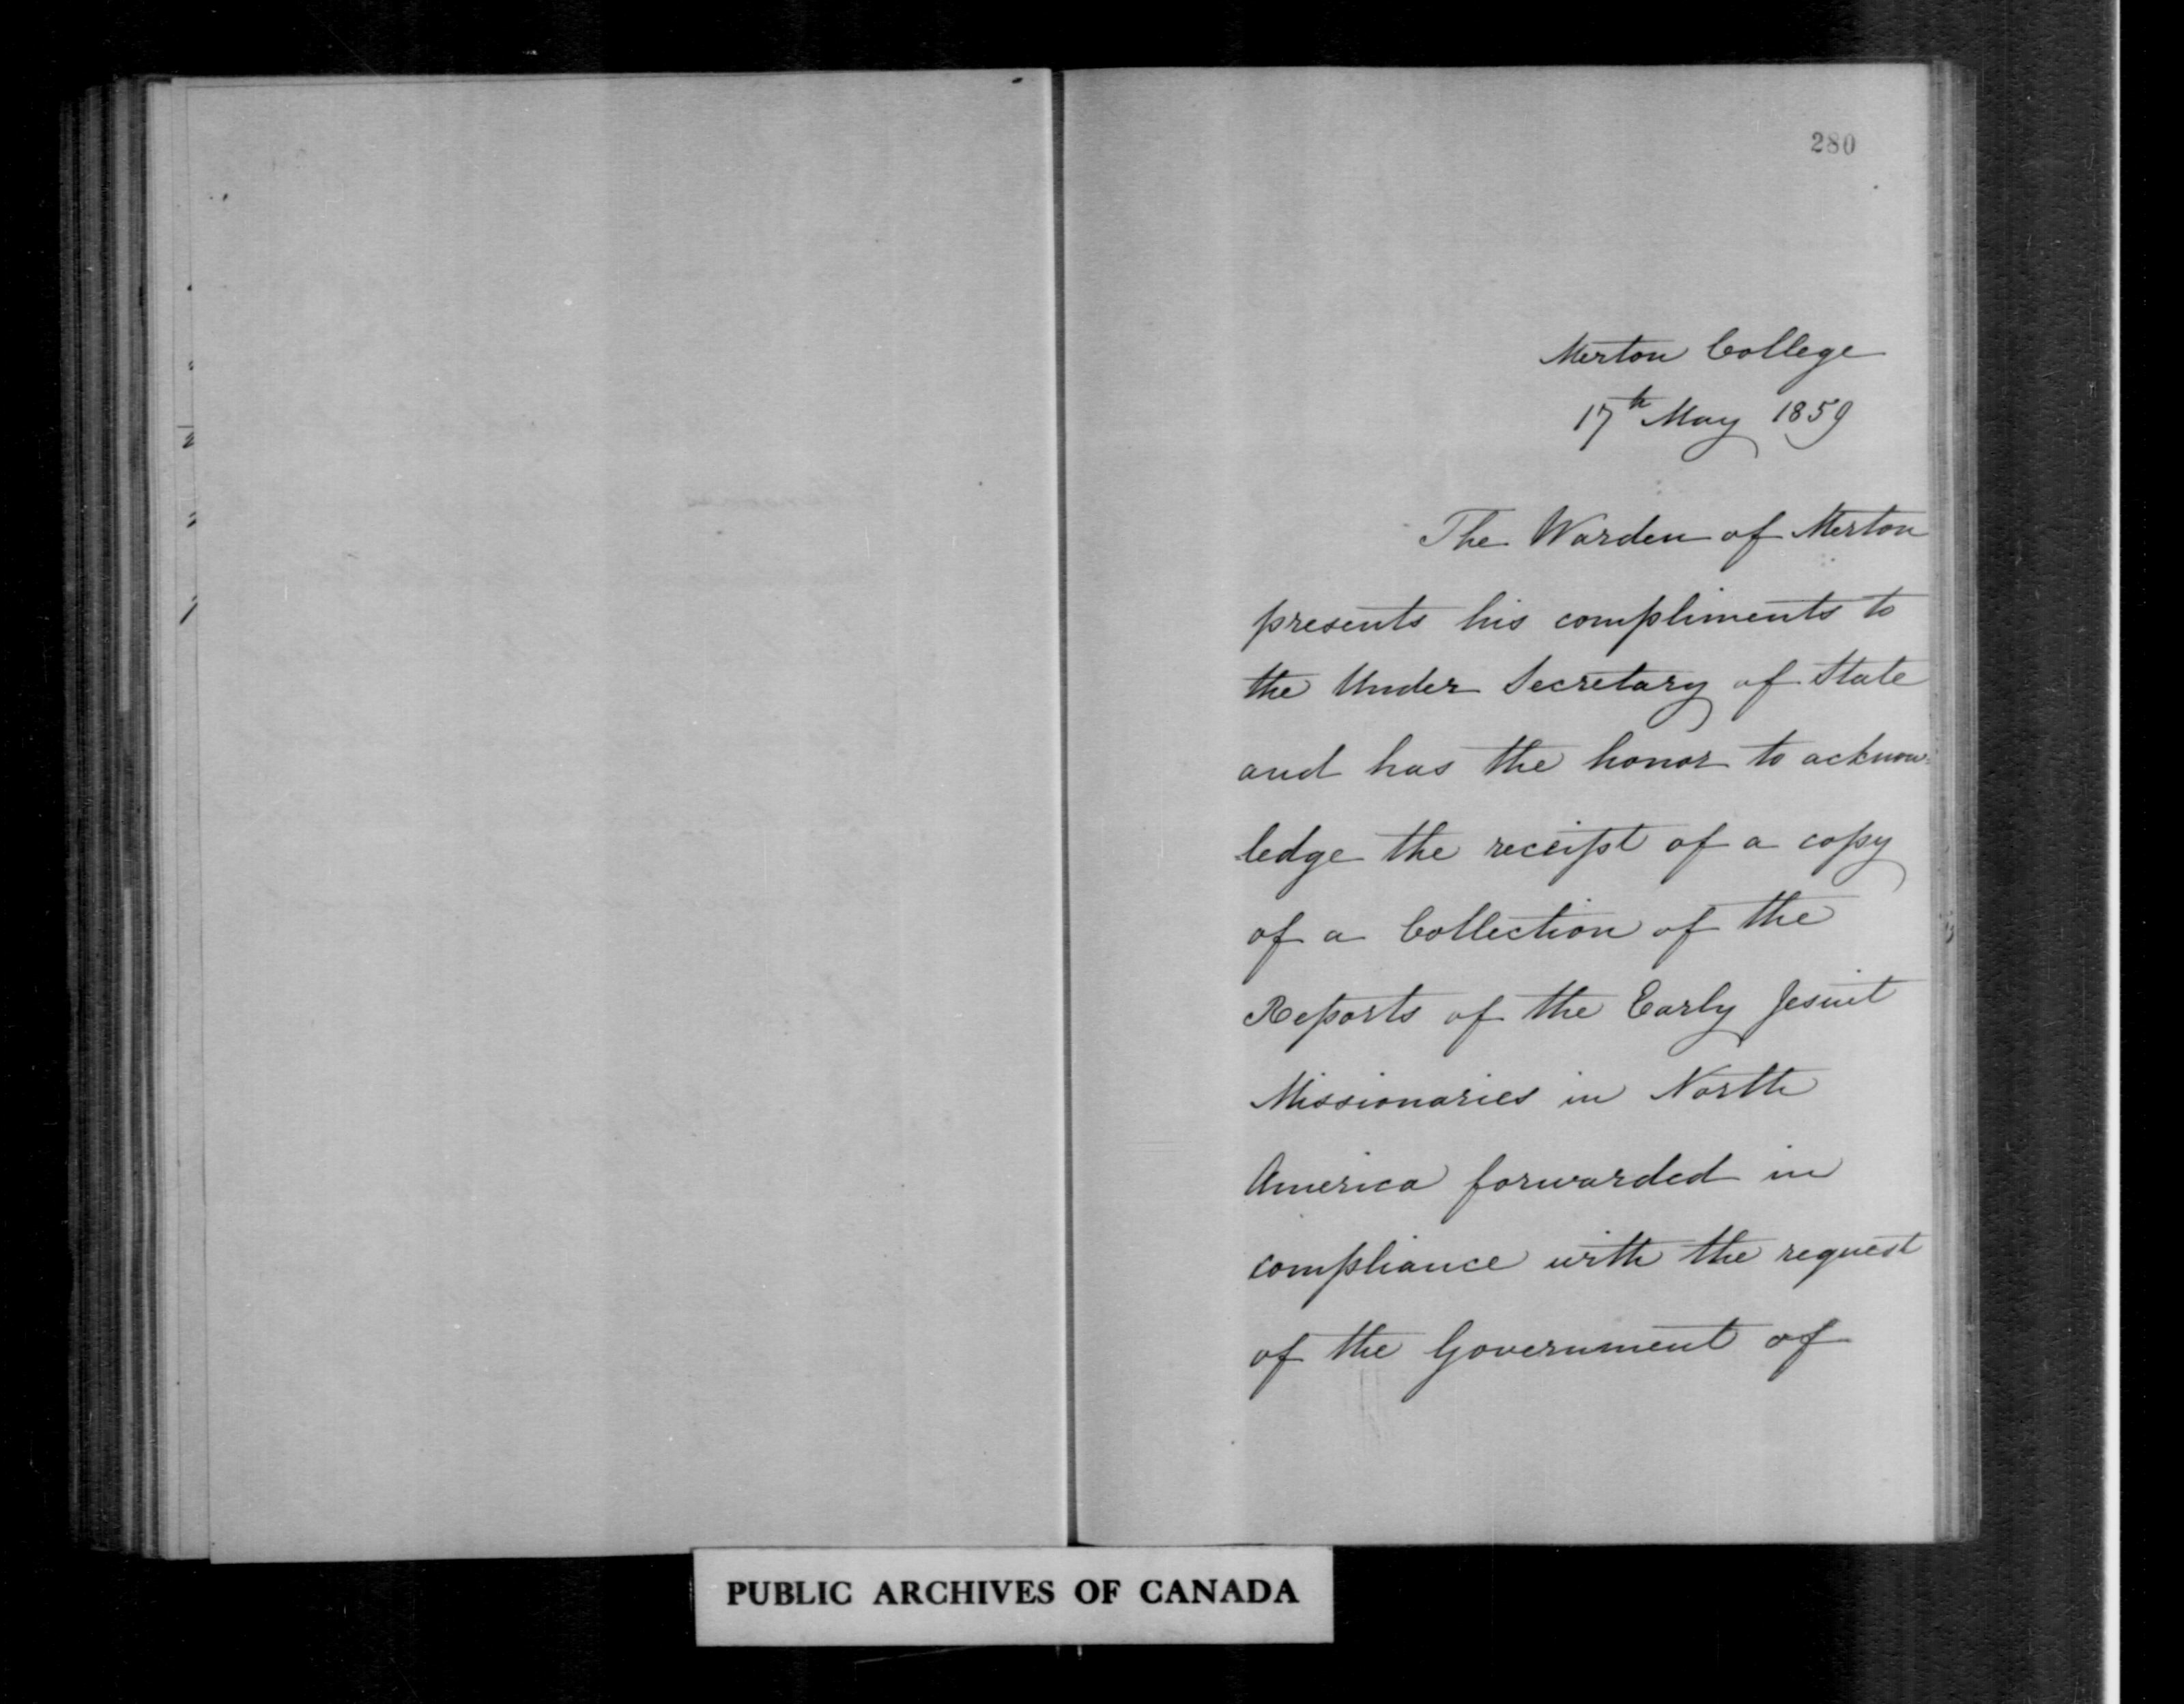 280
Merton College
17th May 1859
The Warden of Merton
presents his compliments to
the Under Secretary of State
and has the honor to acknow-
-ledge the receipt of a copy
of a Collection of the
Reports of the Early Jesuit
Missionaries in North
America forwarded in
compliance with the request
of the Government of
PUBLIC ARCHIVES OF CANADA